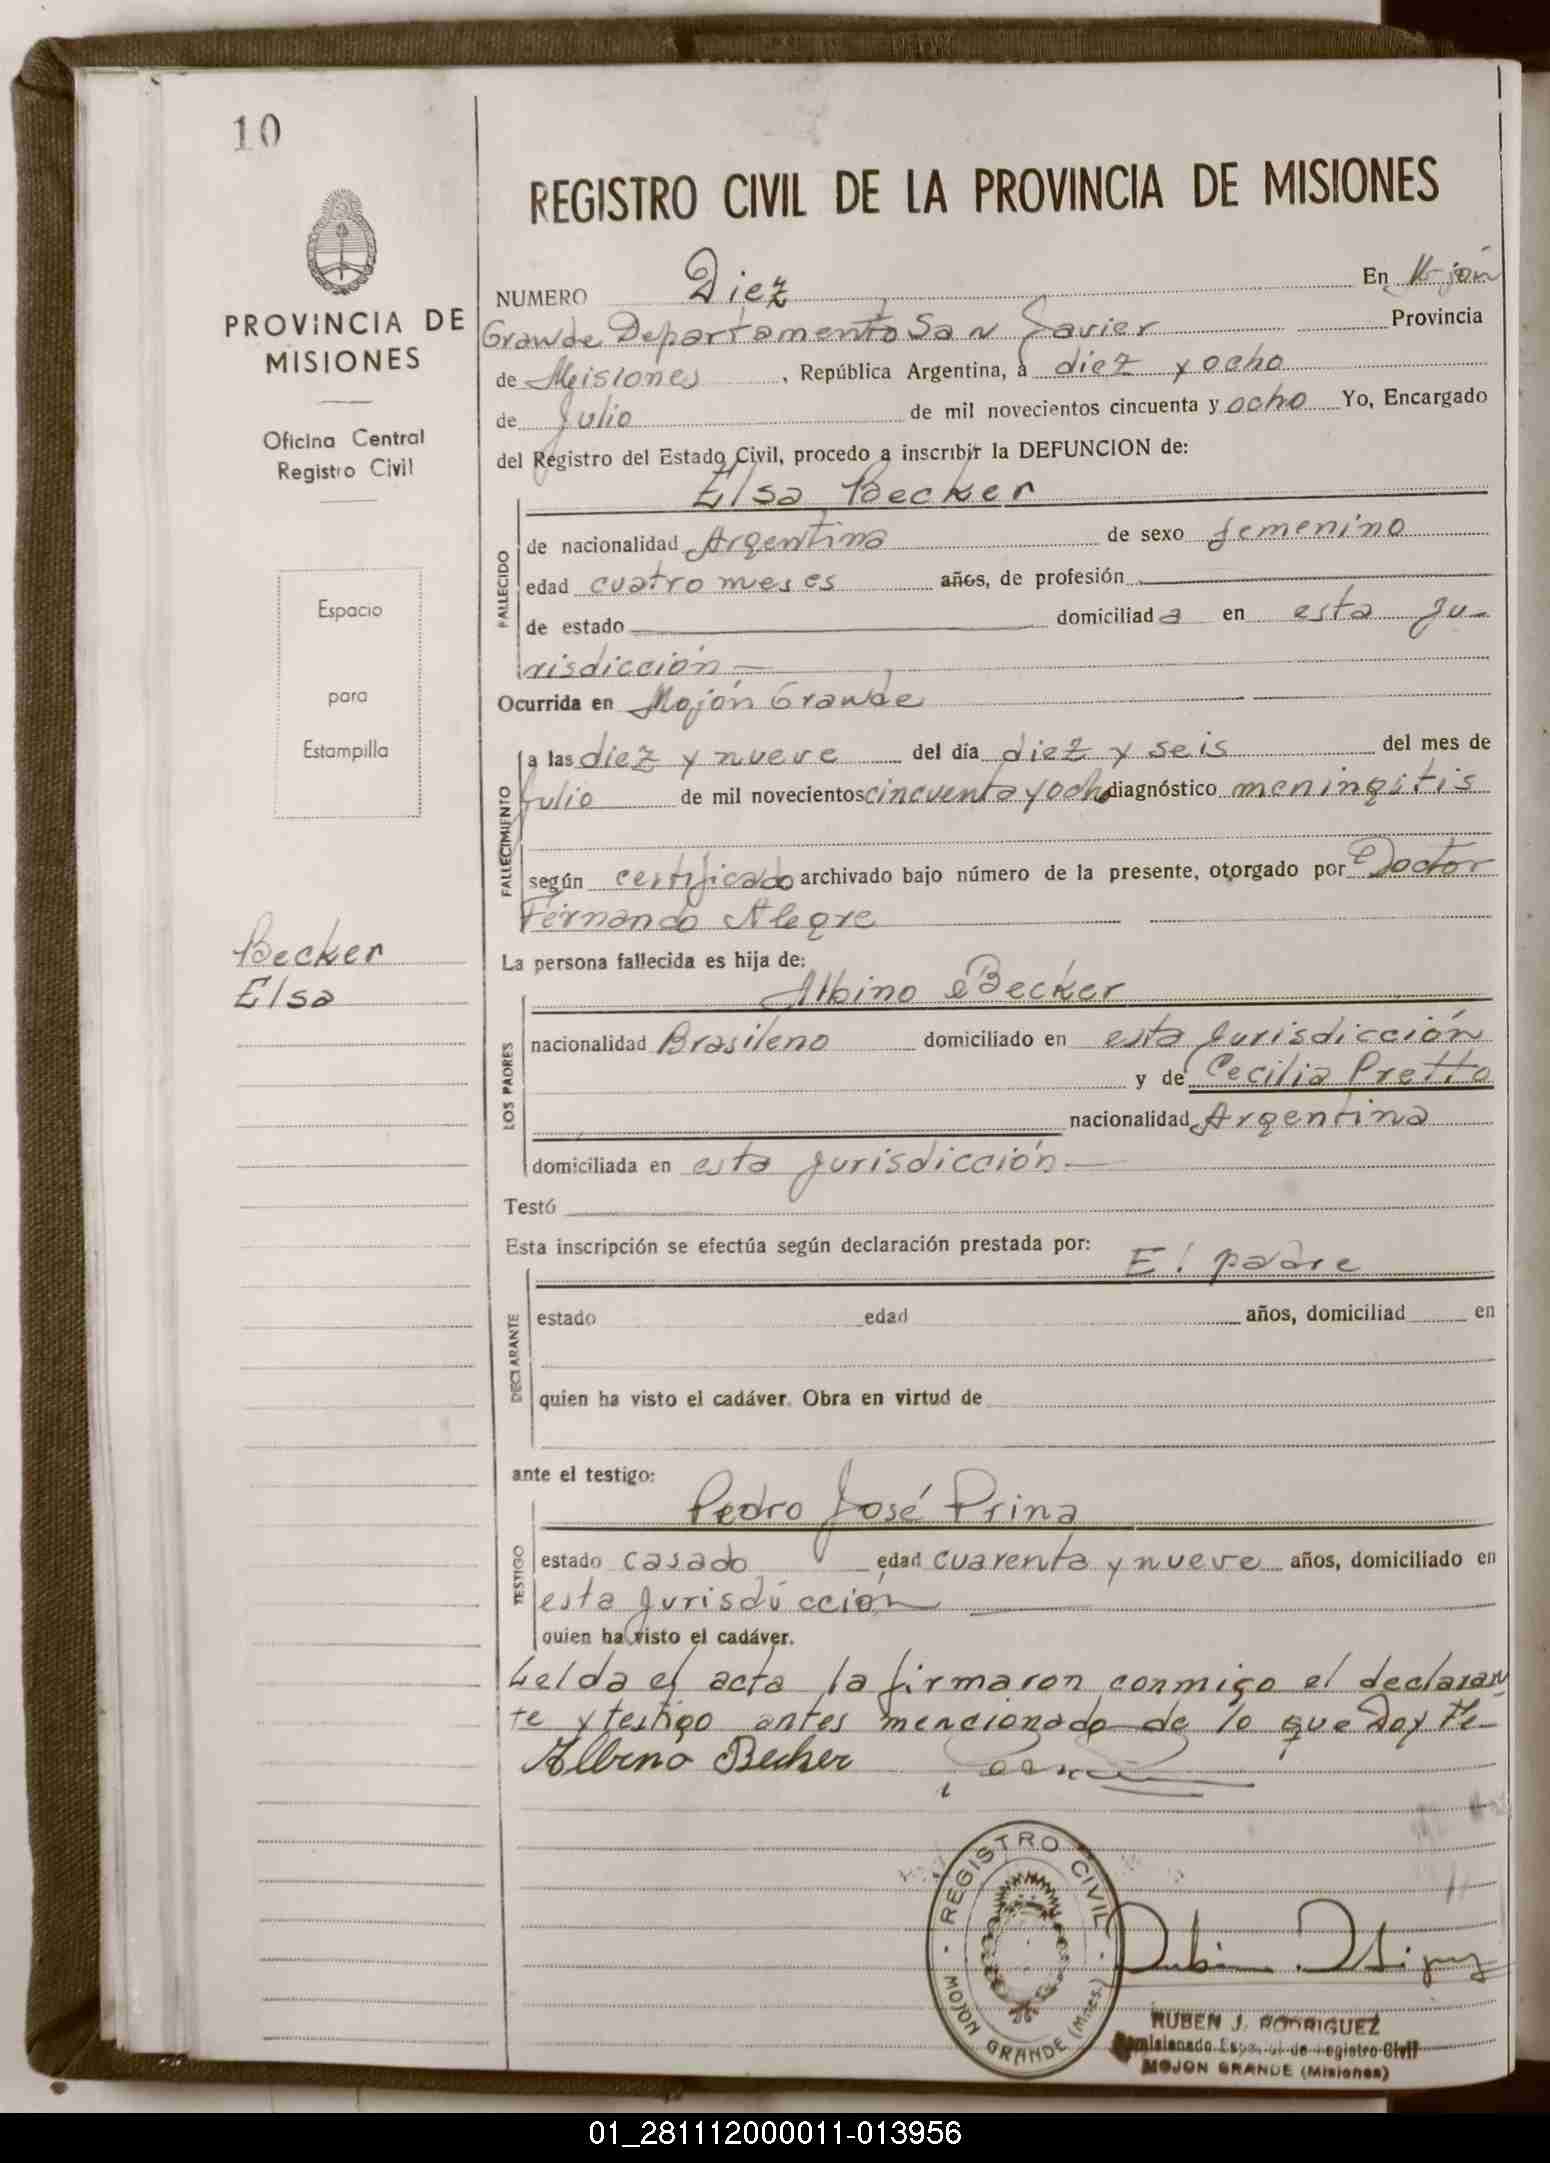 10
PROVINCIA DE
MISIONES
Oficina Central
Registro Civil
Espacio
para
Estampilla
Becker
Elsa
REGISTRO CIVIL DE LA PROVINCIA DE MISIONES
NUMERO Diez En Mojón
Grande Departamento San Javier Provincia
de Misiones, República Argentina, a diez y ocho
de Julio de mil novecientos cincuenta y ocho Yo, Encargado
del Registro del Estado Civil, procedo a inscribir la DEFUNCION de:
Elsa Becker
FALLECIDO
de nacionalidad Argentina de sexo femenino
edad cuatro meses años, de profesión
de estado domiciliada en esta ju-
risdicción
Ocurrida en Mojón Grande
FALLECIMIENTO
a las diez y nueve del día diez y seis del mes de
Julio de mil novecientos cincuenta y ocho diagnóstico meningitis
según certificado archivado bajo número de la presente, otorgado por Doctor
Fernando Alegre
La persona fallecida es hija de:
Albino Becker
LOS PADRES
nacionalidad Brasileno domiciliado en esta jurisdicción
y de Cecilia Pretto
nacionalidad Argentina
domiciliada en esta jurisdicción
Testó
Esta inscripción se efectúa según declaración prestada por:
El padre
DECLARANTE
estado edad años, domiciliad en
quien ha visto el cadáver. Obra en virtud de
ante el testigo:
Pedro José Prina
TESTIGO
estado casado edad cuarenta y nueve años, domiciliado en
esta jurisdicción
quien ha visto el cadáver.
Leida el acta la firmaron conmigo el declaran
te y testigo antes mencionado de lo que Doy Fe
Albino Becker
REGISTRO CIVIL
MOJON GRANDE (Mnes.)
RUBEN J. RODRIGUEZ
Comisionado Especial de Registro Civil
MOJON GRANDE (Misiones)
01_281112000011-013956